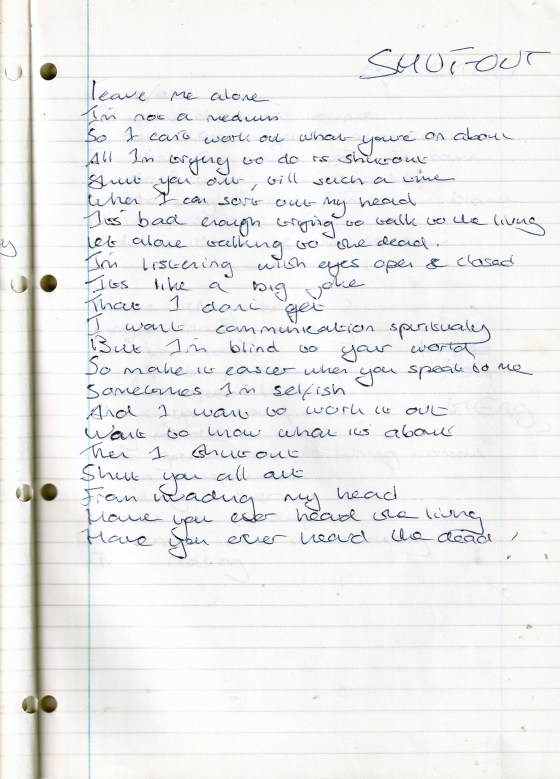 SHUT-OUT
leave me alone
I'm not a medium
So I can't work out what you're on about
All I'm trying to do is shutout
Shut you out, till such a time
When I can sort out my head
It's bad enough trying to talk to the living
let alone talking to the dead.
I'm listening with eyes open & closed
It's like a big joke
That I don't get
I want communication spiritualy
But I'm blind to your world
So make it easier when you speak to me
Sometimes I'm selfish
And I want to work it out
Want to know what it's about
Then I shutout
Shut you all out
From invading my head
Have you ever heard the living
Have you ever heard the dead!